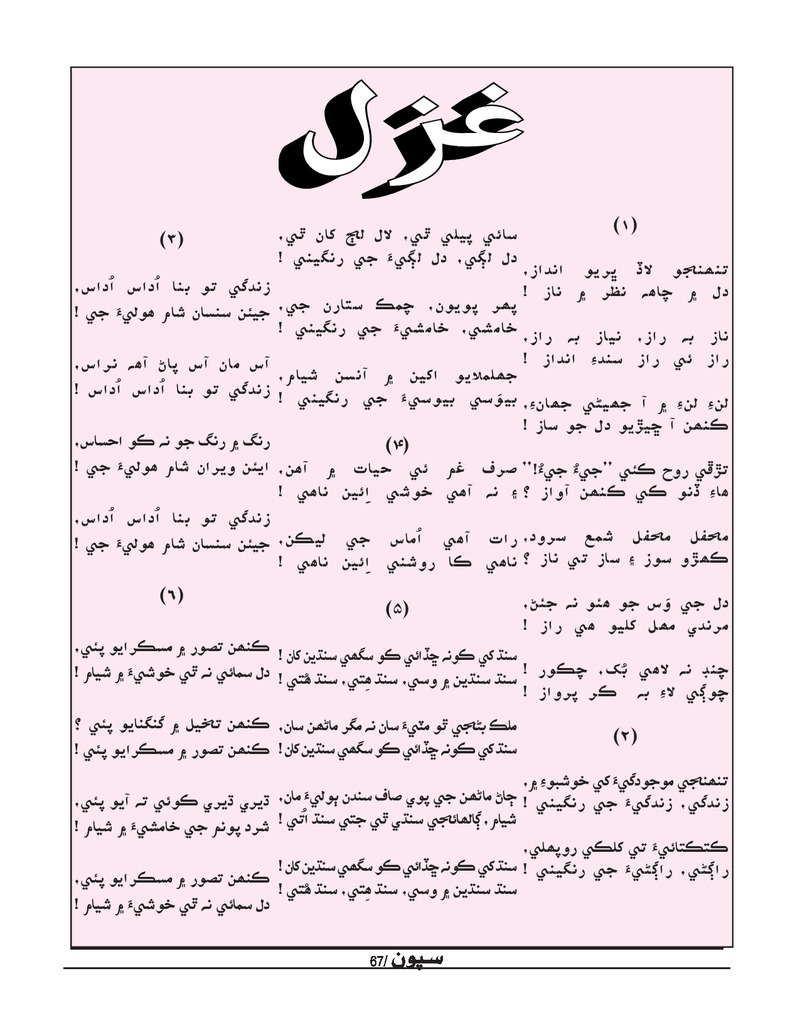 غزل
(۱)
تنهنجو لاڏ ڀريو انداز،
دل ۾ چاهه نظر ۾ ناز !
ناز به راز، نياز به راز،
راز ئي راز سندءِ انداز !
لنءِ لنءِ ۾ آ جهيڻي جهانءِ،
ڪنهن آ ڇيڙيو دل جو ساز !
تڙڦي روح ڪئي ”جيءُ جيءُ!“
هاءِ ڏنو ڪي ڪنهن آواز ؟
محفل محفل شمع سرود،
ڪهڙو سوز ۽ ساز تي ناز ؟
دل جي وَس جو هئو نه جئڻ،
مرندي مهل کليو هي راز !
چنڊ نه لاهي بُک، چڪور !
چوڳي لاءِ به ڪر پرواز !
(۲)
تنهنجي موجودگيءَ کي خوشبوءِ ۾،
زندگي، زندگيءَ جي رنگيني !
ڪتڪتائيءَ تي کلڪي روپهلي،
راڳڻي، راڳڻيءَ جي رنگيني !
سائي پيلي ٿي، لال لڄ کان ٿي،
دل لڳي، دل لڳيءَ جي رنگيني !
پهر پويون، چمڪ ستارن جي،
خامشي، خامشيءَ جي رنگيني !
جهلملايو اکين ۾ آنسن شيام،
بيوَسي بيوسيءَ جي رنگيني !
(۴)
صرف غم ئي حيات ۾ آهن،
۽ نه آهي خوشي اِئين ناهي !
رات آهي اُماس جي ليڪن،
ناهي ڪا روشني اِئين ناهي !
(۵)
سنڌ کي ڪونه ڇڏائي ڪو سگهي سنڌين کان !
سنڌ سنڌين ۾ وسي، سنڌ هِتي، سنڌ هُتي !
ملڪ بڻجي ٿو مٽيءَ سان نه مگر ماڻهن سان،
سنڌ کي ڪونه ڇڏائي ڪو سگهي سنڌين کان !
ڄاڻ ماڻهن جي پوي صاف سندن ٻوليءَ مان،
شيام، ڳالهائجي سنڌي ٿي جتي سنڌ اُتي !
سنڌ کي ڪونه ڇڏائي ڪو سگهي سنڌين کان !
سنڌ سنڌين ۾ وسي، سنڌ هِتي، سنڌ هُتي !
(۳)
زندگي تو بنا اُداس اُداس،
جيئن سنسان شام هوليءَ جي !
آس مان آس پاڻ آهه نراس،
زندگي تو بنا اُداس اُداس !
رنگ ۾ رنگ جو نه ڪو احساس،
ايئن ويران شام هوليءَ جي !
زندگي تو بنا اُداس اُداس،
جيئن سنسان شام هوليءَ جي !
(۶)
ڪنهن تصور ۾ مسڪرايو پئي،
دل سمائي نه ٿي خوشيءَ ۾ شيام !
ڪنهن تخيل ۾ گنگنايو پئي ؟
ڪنهن تصور ۾ مسڪرايو پئي !
ڌيري ڌيري ڪوئي ته آيو پئي،
شرد پونم جي خامشيءَ ۾ شيام !
ڪنهن تصور ۾ مسڪرايو پئي،
دل سمائي نه ٿي خوشيءَ ۾ شيام !
سپون /67